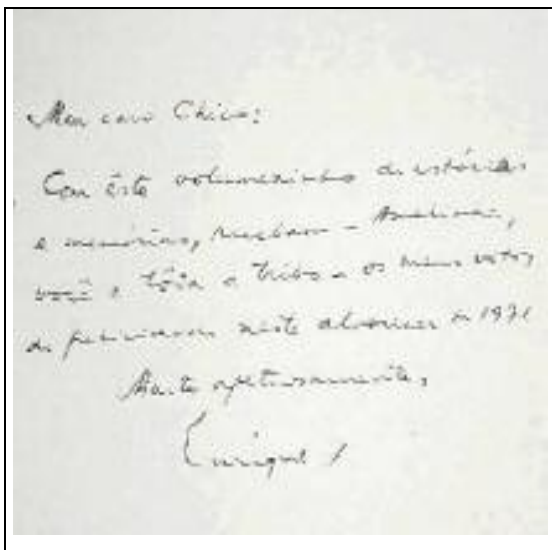 Meu caro Chico:
Com êste volumezinho de estórias
e memórias, recebam - Amelinha,
você e tôda a tribo - os meus votos
de felicidades neste alvorecer de 1971
Muito afetuosamente,
Enrique